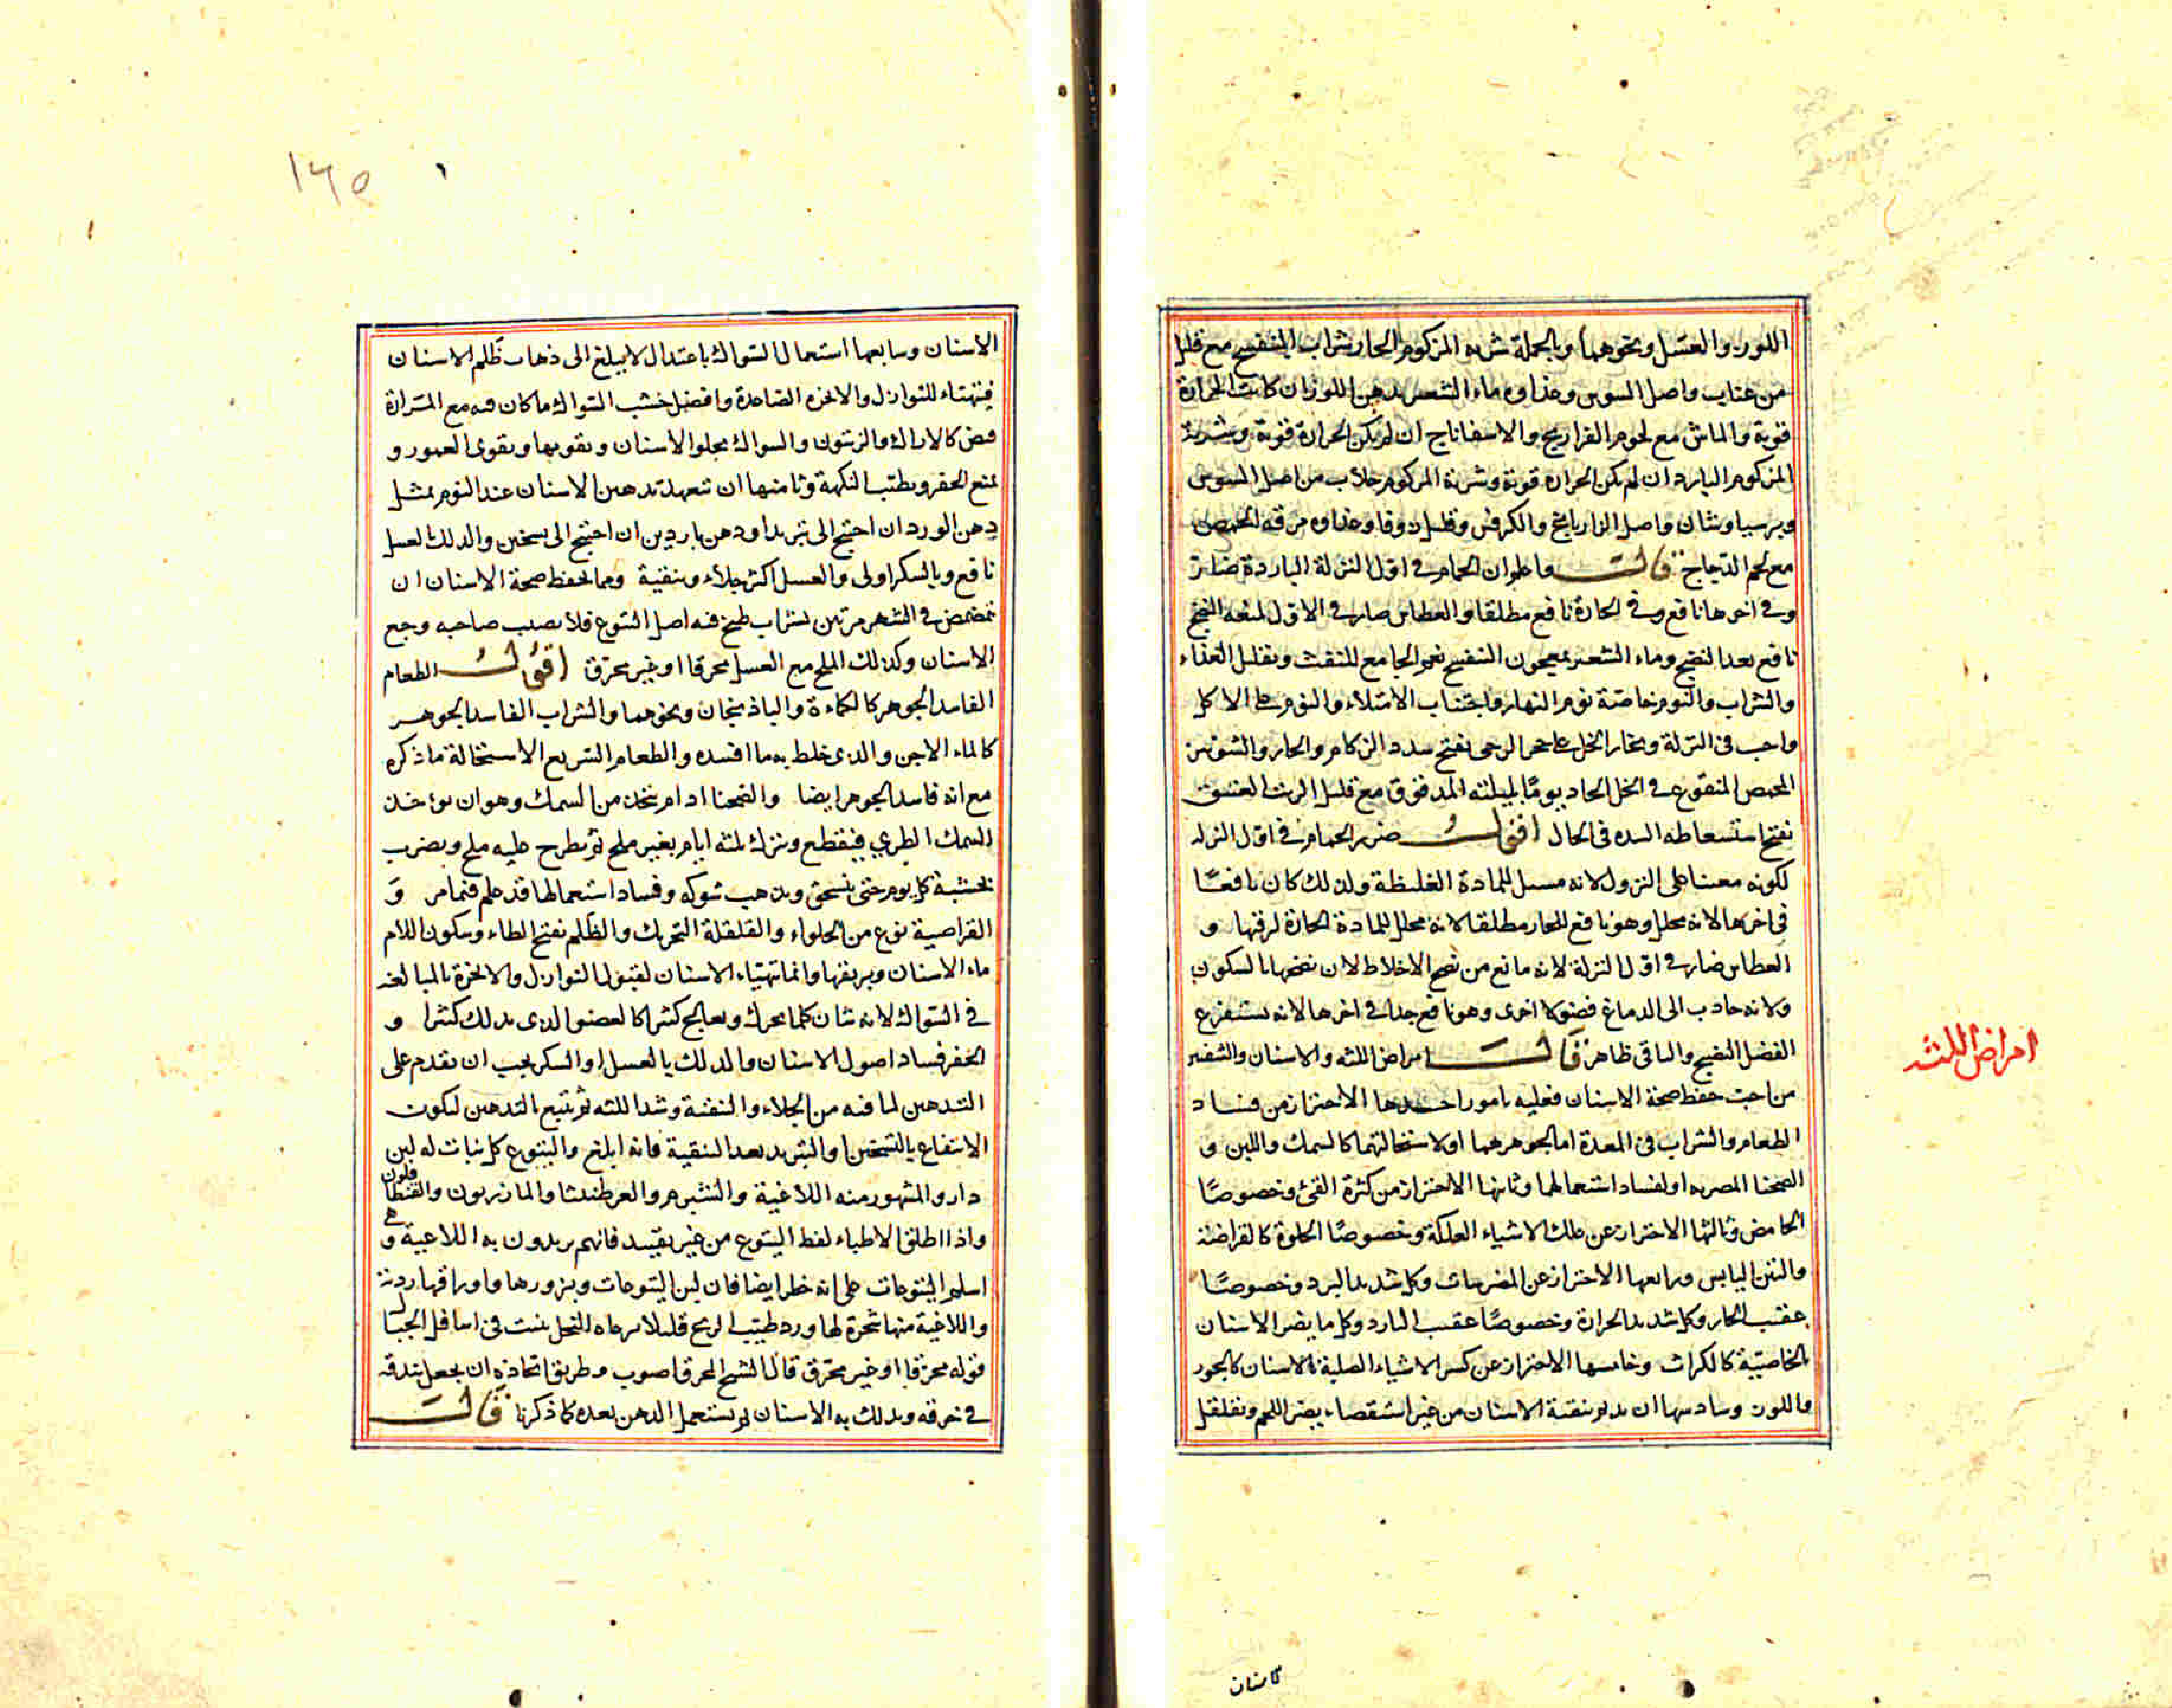 اللوز والعسل ونحوهما وبالجملة شربه المزكوم الحار شراب البنفسج مع قليل
من عناب واصل السوس وغذاوه ماء الشعير بدهن اللوز ان كانت الحرارة
قوية والماش مع لحوم الفراريج والاسفاناج ان لم يكن الحرارة قوية وشربة
المزكوم البارد ان لم يكن الحرارة قوية وشربة المزكوم جلاب من اصل السوس
وبرسياوشان واصل الرازيانج والكرفس وقليل زوفا وغذاوه مرقة الحمص
مع لحم الدجاج قال واعلم ان الحمام في اول النزلة الباردة ضار
وفي اخرها نافع وفي الحارة نافع مطلقا والعطاس ضار في الاول لمنعه النضج
نافع بعد النضج وماء الشعير بمعجون البنفسج نعم الجامع للنفث وتقليل الغذاء
والشراب والنوم خاصة نوم النهار واجتناب الامتلاء والنوم على الاكل
واجب في النزلة وبخار الخل على حجر الرحى يفتح سدد الزكام والحار والشونيز
المحمص المنقوع في الخل الحاد يوما بليلته المدقوق مع قليل الزيت العتيق
يفتح استعاطه السده في الحال اقول ضرر الحمام في اول النزله
لكونه معينا على النزول لانه مسيل للمادة الغليظة ولذلك كان نافعًا
في اخرها لانه محلل وهو نافع للحار مطلقا لانه محلل للمادة الحارة لرقتها و
العطاس ضار في اول النزلة لانه مانع من نضج الاخلاط لان نضجها بالسكون
ولانه جاذب الى الدماغ فضولا اخرى وهو نافع جدا في اخرها لانه يستفرغ
الفضل النضيج والباقى ظاهر قال امراض اللثه والاسنان والشفتين
امراض اللثه
من احب حفظ صحة الاسنان فعليه بامور احدها الاحتراز من فساد
الطعام والشراب في المعدة اما لجوهرهما او لاستحالتهما كالسمك واللبن و
الصحنا المصريه او لفساد استعمالها وثانيها الاحتراز من كثرة القئ وخصوصًا
الحامض وثالثها الاحتراز عن علك الاشياء العلكة وخصوصًا الحلوة كالقراصية
والتين اليابس ورابعها الاحتراز عن المضرسات وكل شديد البرد وخصوصًا
عقيب الحار وكل شديد الحرارة وخصوصًا عقيب البارد وكل ما يضر الاسنان
بالخاصية كالكراث وخامسها الاحتراز عن كسر الاشياء الصلبة بالاسنان كالجوز
واللوز وسادسها ان يديم تنقية الاسنان من غير استقصاء يضر اللحم وتقلقل
كاسنان
١٦٥
الاسنان وسابعها استعمال السواك باعتدال لا يبلغ الى ذهاب ظَلم الاسنان
فيتهيّاء للنوازل والابخره الصاعدة وافضل خشب السواك ما كان فيه مع المرارة
قبض كالاراك والزيتون والسواك يجلو الاسنان ويقويها ويقوى العمور و
يمنع الحفر ويطيّب النكهة وثامنها ان تتعهد تدهين الاسنان عند النوم بمثل
دهن الورد ان احتيج الى تبريد او دهن ناردين ان احتيج الى تسخين والدلك بالعسل
نافع وبالسكر اولى والعسل اكثر جلاء وتنقية ومما يحفظ صحة الاسنان ان
تمضمض في الشهر مرتين بشراب طبخ فيه اصل اليتوع فلا يصيب صاحبه وجع
الاسنان وكذلك الملح مع العسل محرقا او غير محرق اقول الطعام
الفاسد الجوهر كالكماءة والباذنجان ونحوهما والشراب الفاسد الجوهر
كالماء الاجن والذى خلط به ما افسده والطعام السريع الاستحالة ما ذكره
مع انه فاسد الجوهر ايضا والصحنا ادام يتخذ من السمك وهو ان يوخذ
السمك الطري فيقطع ويترك ثلثه ايام بغير ملح ثم يطرح عليه ملح ويضرب
بخشبة كل يوم حتى ينسحق ويذهب شوكه وفساد استعمالها قد علم فيما مر وَ
القراصية نوع من الحلواء والقلقلة التحريك والظَلم بفتح الظاء وسكون اللام
ماء الاسنان وبريقها وانما تتهيّاء الاسنان لقبول النوازل والابخرة بالمبالغه
في السواك لانه شان كلما يحرك ويعالج كثيرا كالعضو الذى يدلك كثيرا و
الحفر فساد اصول الاسنان والدلك بالعسل او السكر يجب ان يقدم على
التدهين لما فيه من الجلاء والتنقية وشد اللثه ثم يتبع التدهين ليكون
الانتفاع بالتسخين او التبريد بعد التنقية فانه ابلغ واليتوع كل نبات له لبن
دار والمشهور منه اللاغية والشبرم والعرطنيثا والمازريون والقنطا
فلون
واذا اطلق الاطباء لفظ اليتوع من غير تقييد فانهم يريدون به اللاعية و
اسلم اليتوعات على انه خطر ايضا فان لبن اليتوعات وبزورها واوراقها رديئة
واللاغية منها شجرة لها ورد طيّب الريح قليلا ترعاه النحل ينبت في اسافل الجبا
ل
قوله محرقا او غير محرق قال الشيخ المحرق اصوب وطريق اتخاذه ان يجعل بندقه
في خرقه ويدلك به الاسنان ثم يستعمل الدهن بعده كما ذكرنا قال